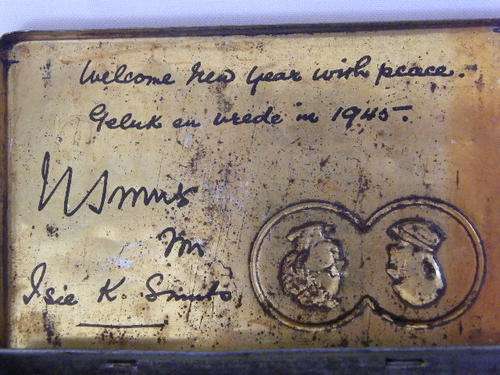 Welcome New Year with peace.
Geluk en vrede in 1945.
JC Smuts
en
Isie K. Smuts